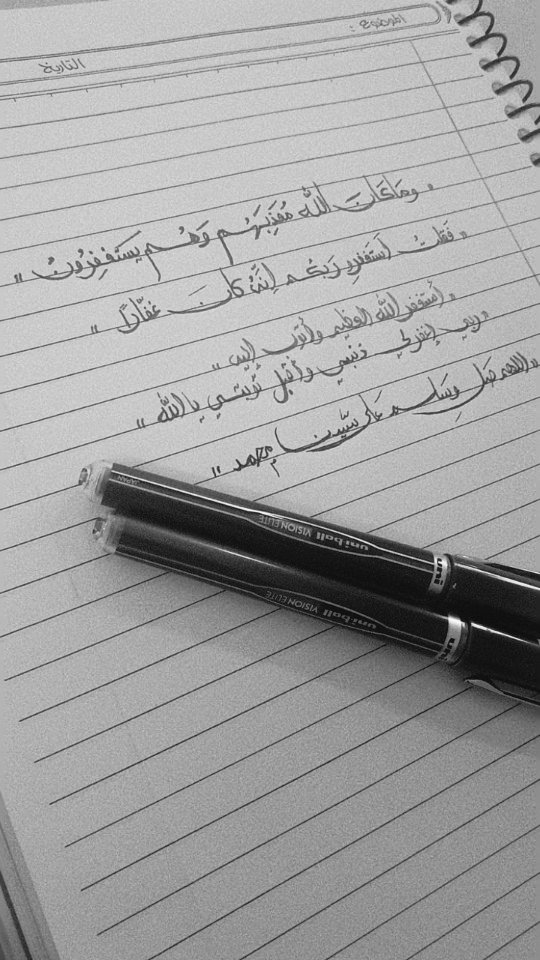 الموضوع :
التاريخ
" وما كان الله معذبهم وهم يستغفرون "
" فقلت استغفروا ربكم إنه كان غفّارًا "
" أستغفر الله العظيم وأتوب إليه "
" ربي إغفرلي ذنبي وأقبل توبتي يا الله "
" اللهم صل وسلم على سيّدنا محمد "
JAPAN
uni-ball VISION ELITE
uni
uni-ball VISION ELITE
uni